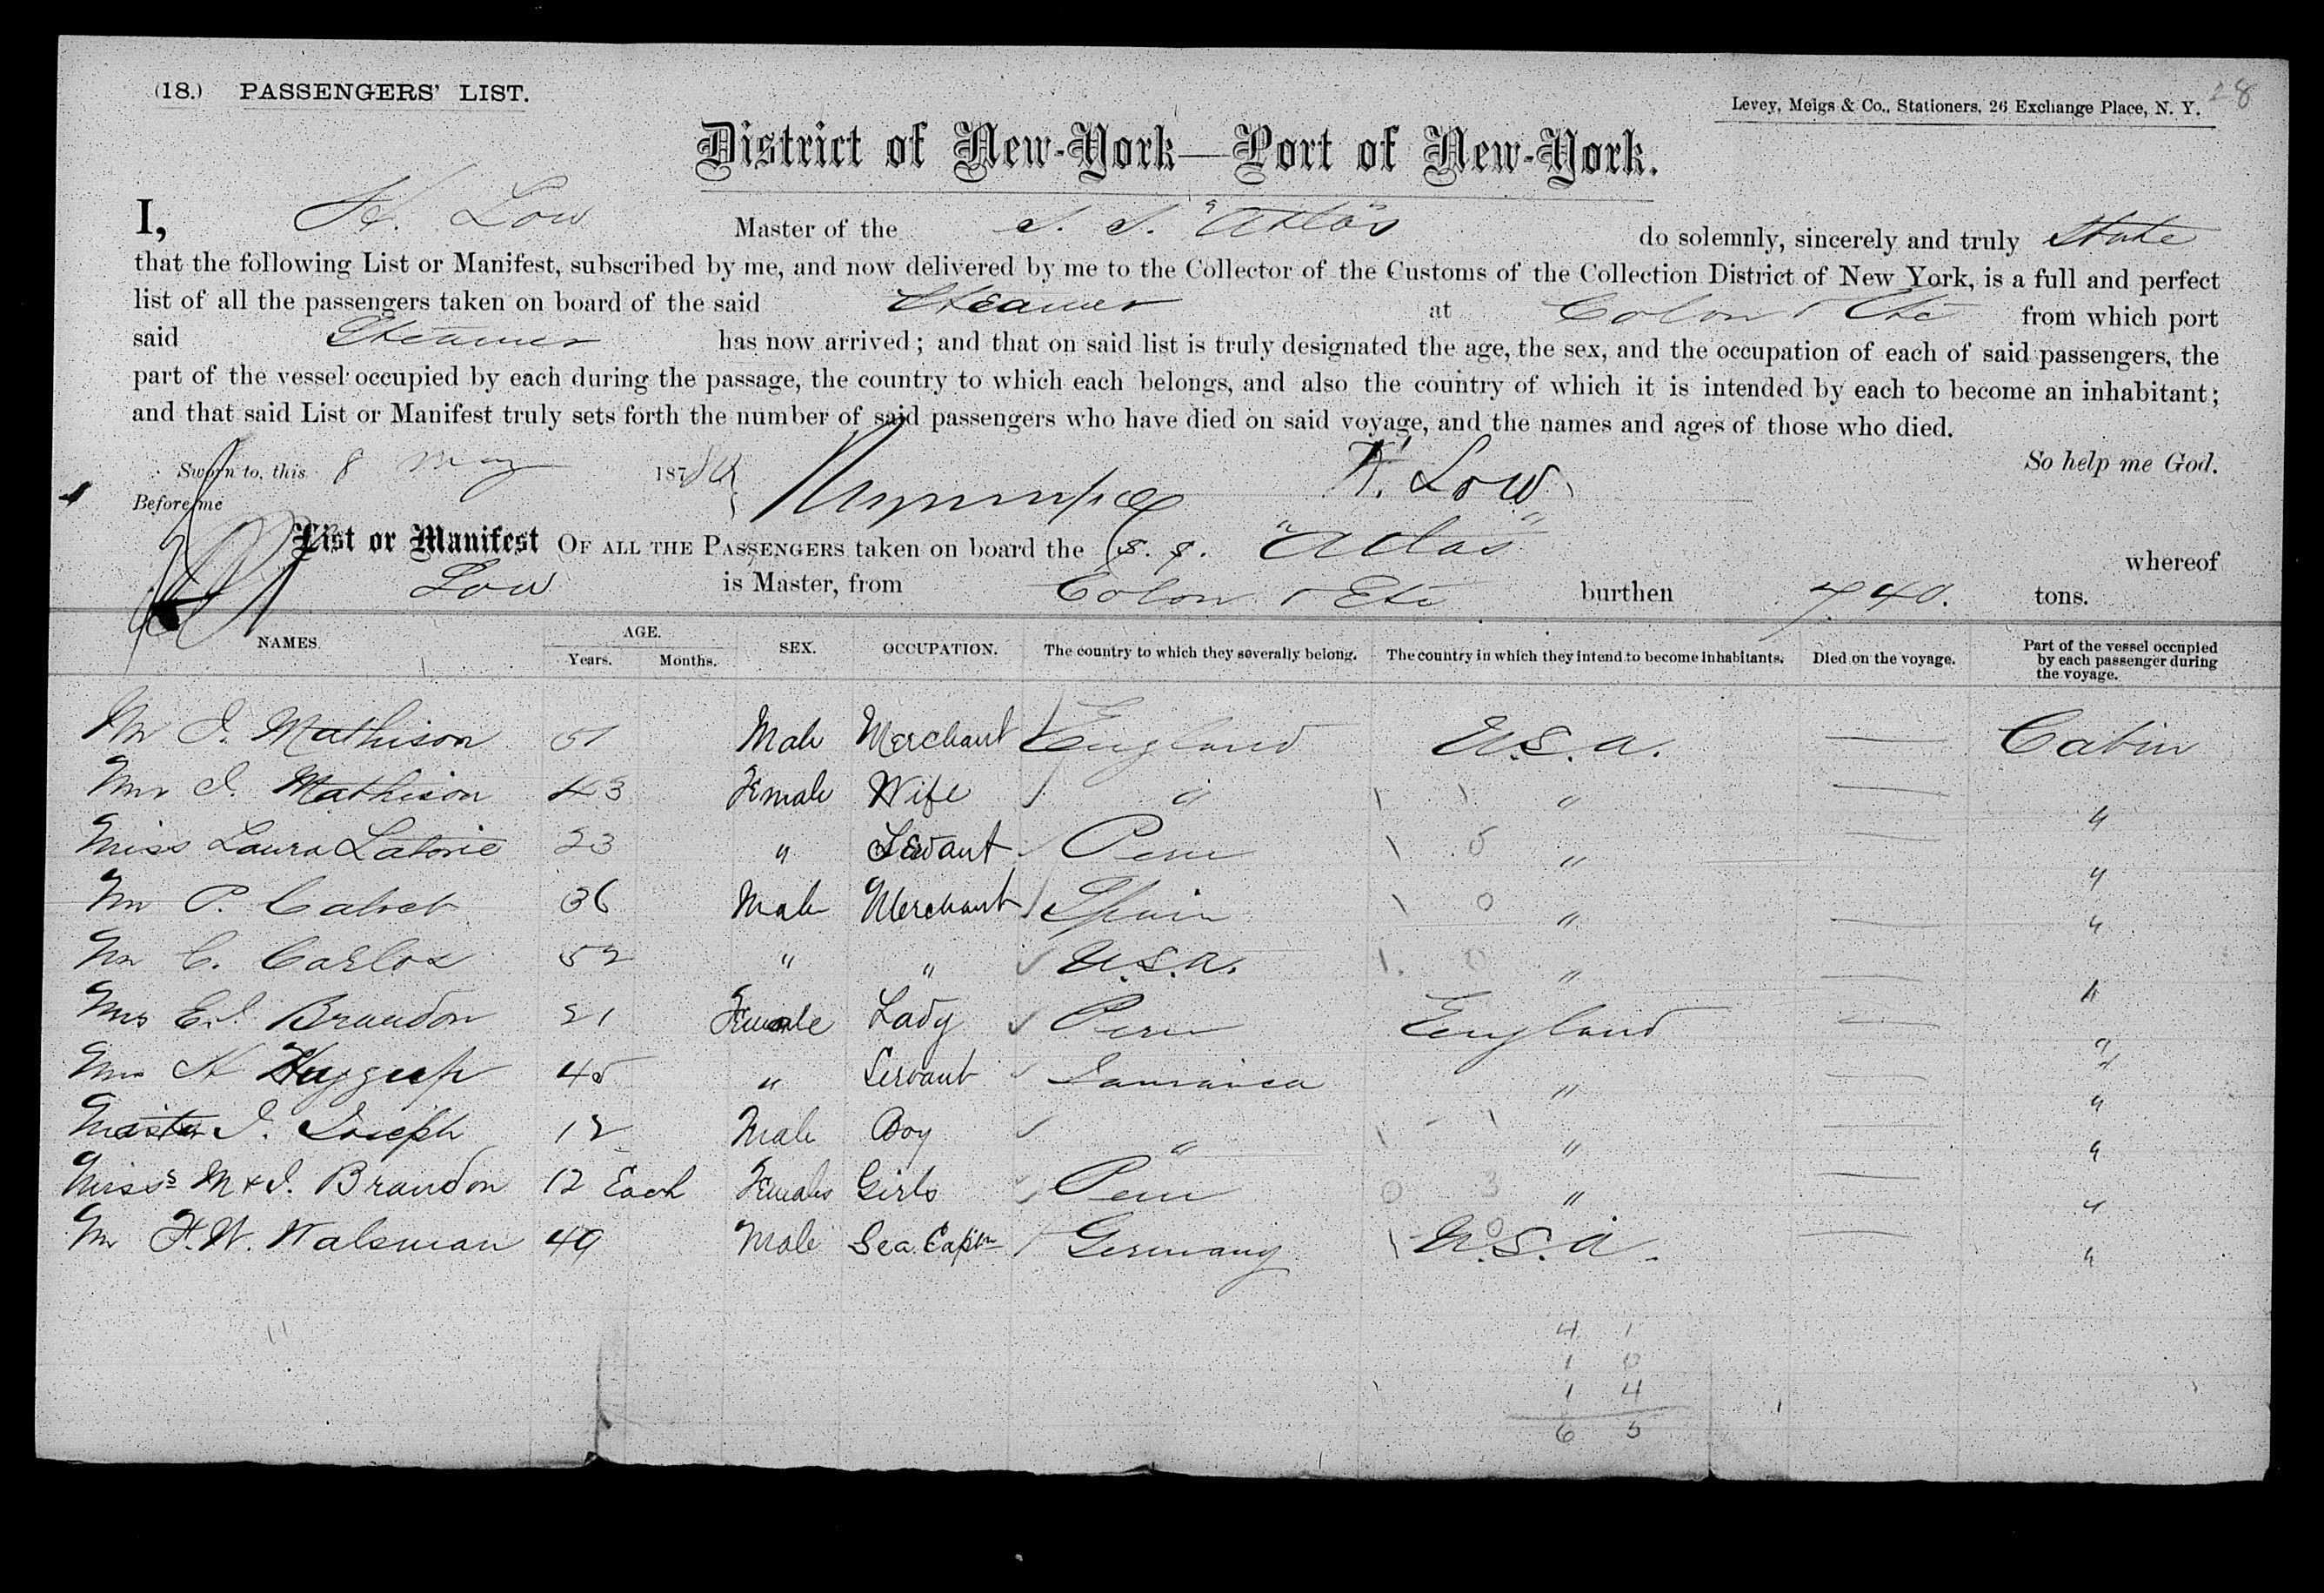 (18.) PASSENGERS' LIST.
Levey, Meigs & Co., Stationers, 26 Exchange Place, N. Y. 28
District of New-York—Port of New-York.
I, Low Master of the S. S. "Atlas" do solemnly, sincerely and truly State
that the following List or Manifest, subscribed by me, and now delivered by me to the Collector of the Customs of the Collection District of New York, is a full and perfect
list of all the passengers taken on board of the said Steamer at Colon & Etc from which port
said Steamer has now arrived; and that on said list is truly designated the age, the sex, and the occupation of each of said passengers, the
part of the vessel occupied by each during the passage, the country to which each belongs, and also the country of which it is intended by each to become an inhabitant;
and that said List or Manifest truly sets forth the number of said passengers who have died on said voyage, and the names and ages of those who died.
So help me God.
Sworn to, this 8 May 187 80 Low
Before me
List or Manifest OF ALL THE PASSENGERS taken on board the S. S. "Atlas" whereof
Low is Master, from Colon & Etc burthen 740. tons.
NAMES. AGE. Years. Months. SEX. OCCUPATION. The country to which they severally belong. The country in which they intend to become inhabitants. Died on the voyage. Part of the vessel occupied by each passenger during the voyage.
Mr J. Mathison 51 Male Merchant England U.S.A. — Cabin
Mrs J. Mathison 43 Female Wife " " — "
Miss Laura Latorie 23 " Peru " — "
Mr P. 36 Male Merchant Spain " — "
Mr C. Carlos 52 " " U.S.A. " — "
Mrs E.J. Brandon 21 Female Lady Peru England — "
45 " Servant Jamaica " — "
Master J. Joseph 12 Male Boy " " — "
Miss's M & J. Brandon 12 Each Females Girls Peru " — "
Mr F.W. Walsman 49 Male Sea Captn Germany U.S.A. — "
4 1
1 0
1 4
6 5